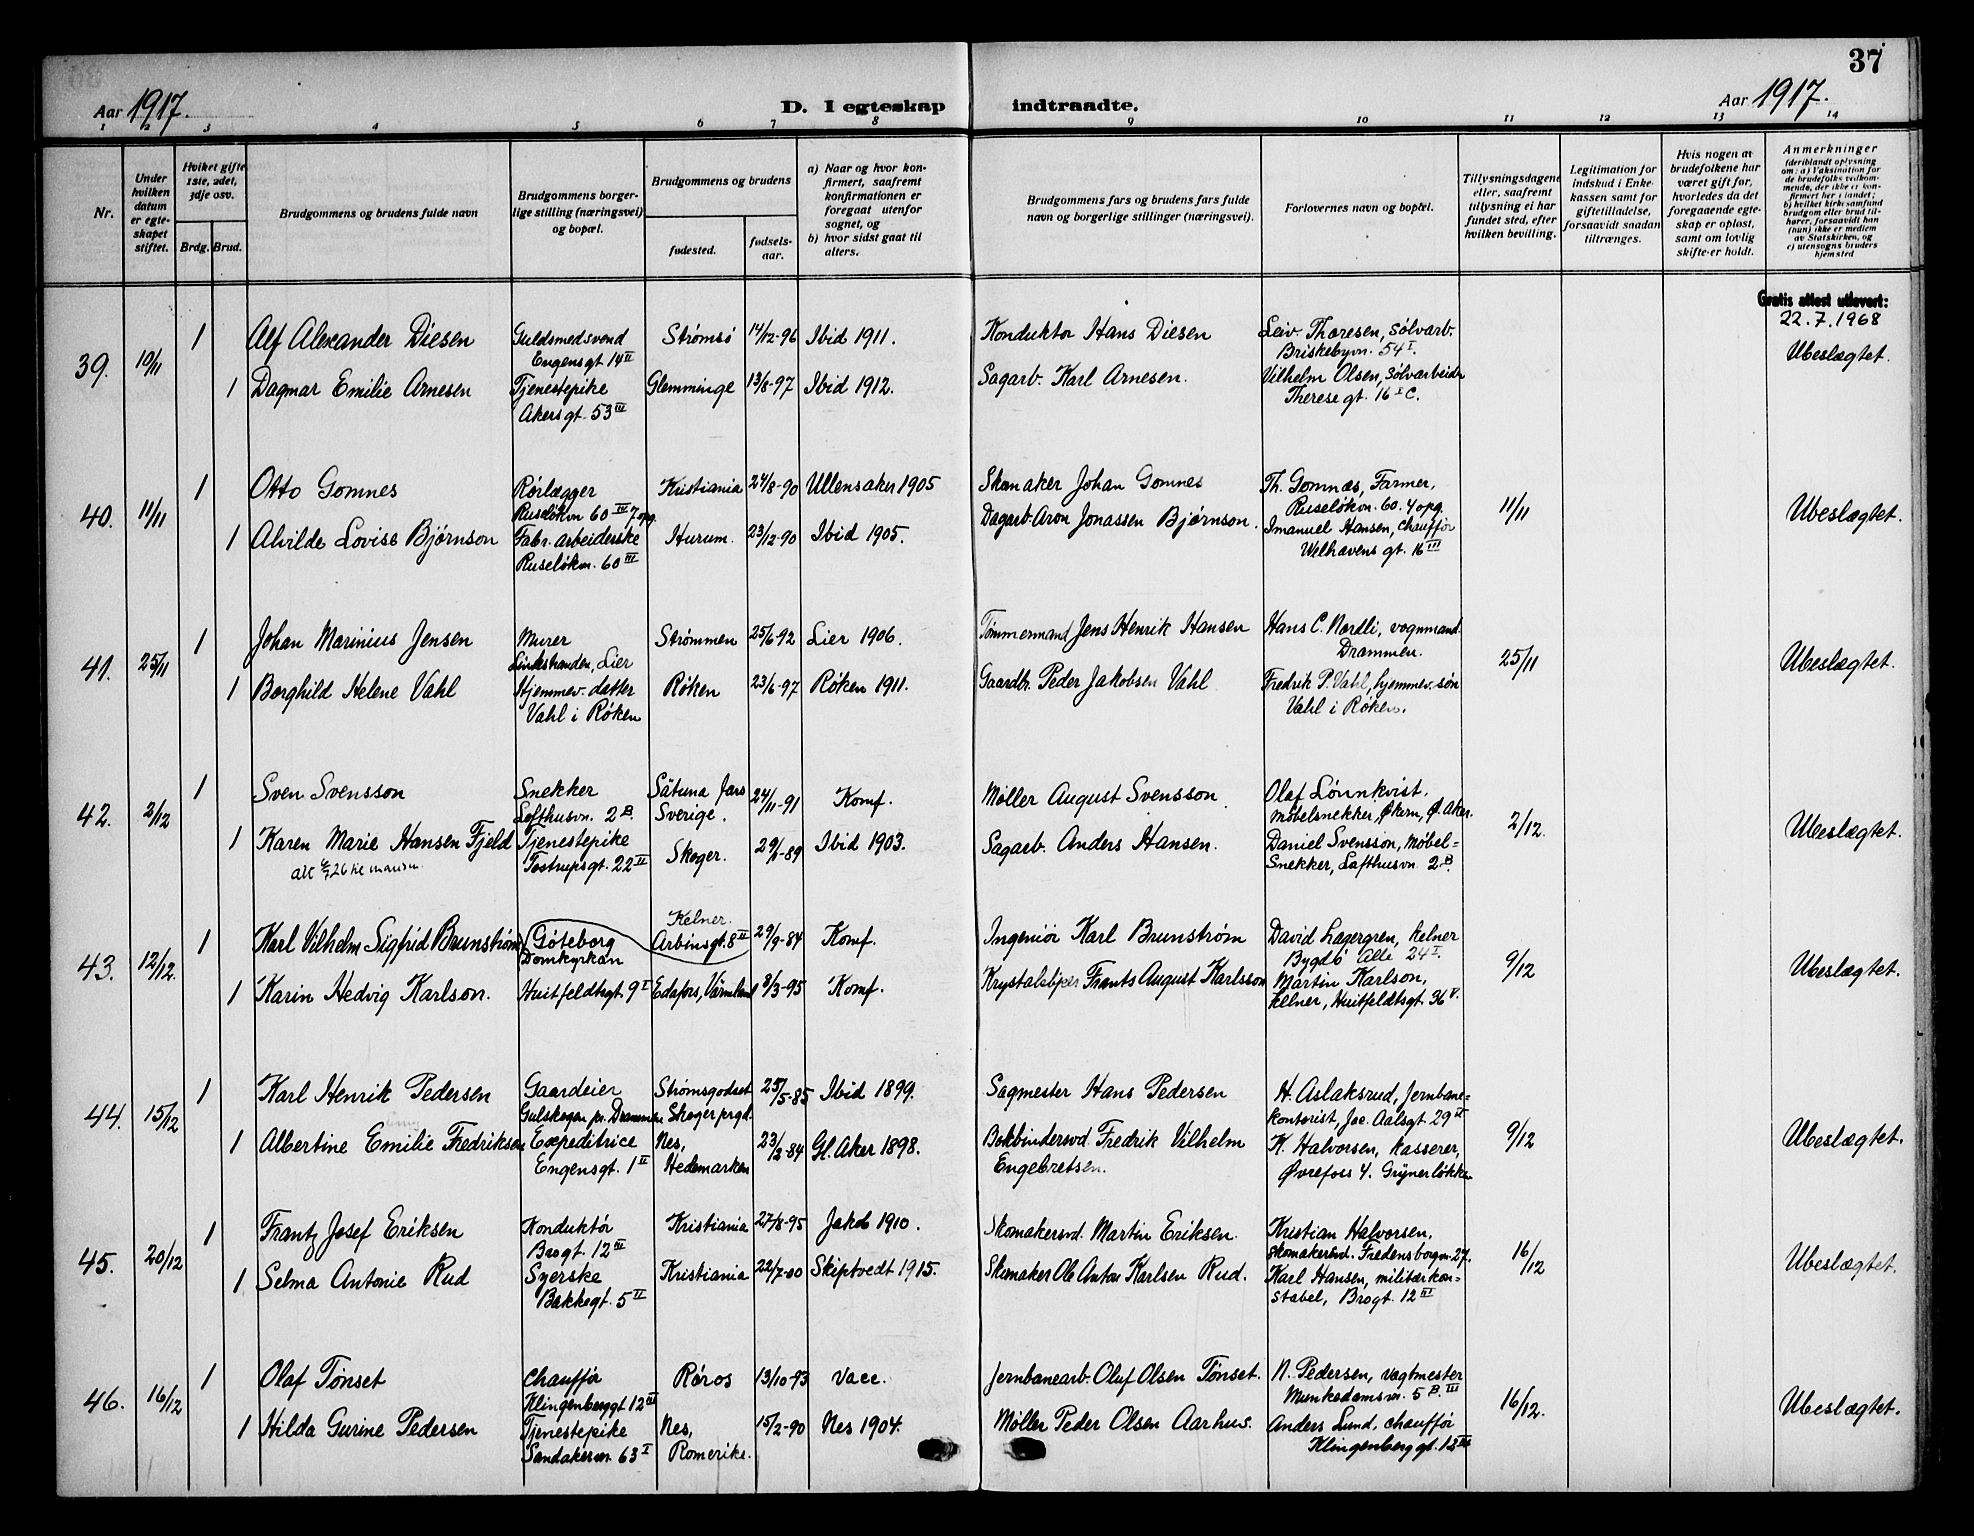 37
Aar 1917. D. I egteskap indtraadte. Aar 1917.
1 2 3 4 5 6 7 8 9 10 11 12 13 14
Nr.
Under hvilken datum er egteskapet stiftet.
Hvilket gifte 1ste, 2det, 3dje osv.
Brdg. Brud.
Brudgommens og brudens fulde navn
Brudgommens borgerlige stilling (næringsvei) og bopæl.
Brudgommens og brudens
fødested.
fødselsaar.
a) Naar og hvor konfirmert, saafremt konfirmationen er foregaat utenfor sognet, og
b) hvor sidst gaat til alters.
Brudgommens fars og brudens fars fulde navn og borgerlige stillinger (næringsvei).
Forlovernes navn og bopæl.
Tillysningsdagene eller, saafremt tillysning ei har fundet sted, efter hvilken bevilling.
Legitimation for indskud i Enkekassen samt for giftetilladelse, forsaavidt saadan tiltrænges.
Hvis nogen at brudefolkene har været gift før, hvorledes da det foregaaende egteskap er opløst, samt om lovlig skifte er holdt.
Anmerkninger
(deriblandt oplysning om: a) Vaksination for de brudefolks vedkommende, der ikke er konfirmert her i landet; b) hvilket kirkesamfund brudgom eller brud tilhører, forsaavidt han (hun) ikke er medlem av Statskirken, og c) utensogns bruders hjemsted
Gratis attest utlevert:
22.7.1968
39. 10/11 1 Alf Alexander Diesen Guldsmedsvend Strømsø 14/12-96 Ibid 1911. Konduktør Hans Diesen Leiv Thoresen, Sølvarb. Ubeslægtet.
Engensgt 14 II Briskebyvn. 54 I.
1 Dagmar Emilie Arnesen Tjenestepike Glemminge 13/8-97 Ibid 1912. Sagarb. Karl Arnesen. Vilhelm Olsen, Sølvarbeider
Akersgt. 53 III Therese gt. 16 I C.
40. 11/11 1 Otto Gomnes Rørlægger Kristiania 24/8-90 Ullensaker 1905 Skomaker Johan Gomnes Th. Gomnæs, Farmer, 11/11 Ubeslægtet.
Ruseløkvn 60 III 7 opg. Ruseløkvn. 60. 4 opg.
1 Alvilde Lovise Bjørnson Fabr. arbeiderske Hurum. 23/12-90 Ibid 1905. Dagarb. Aron Jonassen Bjørnson. Imanuel Hansen, Chauffør
Ruseløkvn. 60 III Welhavens gt. 16 III
41. 25/11 1 Johan Marinius Jensen Murer Strømmen 25/6-92 Lier 1906. Tømmermand Jens Henrik Hansen Hans C. Nordli, vognmand 25/11 Ubeslægtet.
Linnestranden, Lier Drammen.
1 Borghild Helene Vahl Hjemmev. datter Røken 23/6-97 Røken 1911. Gaardbr. Peder Jakobsen Vahl Fredrik P. Vahl, hjemmev. søn
Vahl i Røken Vahl i Røken.
42. 2/12 1 Sven Svensson Snekker Sätuna Jærs 24/11-91 Komf. Møller August Svensson Olaf Lönnkvist. 2/12. Ubeslægtet.
Lofthusvn. 2 B. Sverige. Møbelsnekker, Økern, Ø. Aker.
1 Karen Marie Hansen Fjeld Tjenestepike Skoger. 29/1-89 Ibid 1903. Sagarb. Anders Hansen. Daniel Svensson, Møbel=
Tostrupsgt. 22 II Snekker, Lofthusvn 2 B.
43. 12/12. 1 Karl Vilhelm Sigfrid Brunstrøm Göteborg Kelner. 29/9-84 Komf. Ingeniør Karl Brunstrøm David Lagergren, kelner 9/12 Ubeslægtet.
Domkyrkan Arbinsgt. 8 II Bygdö Alle 24 I.
1 Karin Hedvig Karlson. Huitfeldtsgt 9 I Edafors, Värmland 8/3-95 Komf. Krystalsliper Frants August Karlsson Martin Karlson,
kelner, Huitfeldtsgt. 36 V.
44. 15/12 1 Karl Henrik Pedersen Gaardeier Strømsgodset 25/5-85 Ibid 1899. Sagmester Hans Pedersen H. Aslaksrud, Jernbane= 9/12 Ubeslægtet.
Gulskogen pr. Drammen Skoger prgd. kontorist, Jac. Aalsgt 29 II
1 Albertine Emilie Fredriksen Expeditrice Nes, 23/2-84 Gl. Aker 1898. Bokbindersvd Fredrik Vilhelm K. Halvorsen, kasserer,
Engensgt. 1 II Hedemarken Engebretsen. Øvrefoss 4. Grünerløkken
45. 20/12 1 Frantz Josef Eriksen Konduktör Kristiania 27/8-95 Jakob 1910. Skomakersvd. Martin Eriksen. Kristian Halvorsen, 16/12 Ubeslægtet.
Brogt. 12 III skomakersvd. Fredensborgvn. 27.
1 Selma Antonie Rud Syerske Kristiania 22/7-00 Skiptvedt 1915. Skomaker Ole Anton Karlsen Rud. Karl Hansen, militærkon=
Bakkegt. 5 II stabel, Brogt. 12 III
46. 16/12 1 Olaf Tønset Chauffør Røros 13/10-93 Vacc. Jernbanearb. Oluf Olsen Tønset. N. Pedersen, vagtmester 16/12. Ubeslægtet.
Klingenberggt 12 III Munkedamsvn. 5 B. III
1 Hilda Gurine Pedersen Tjenestepike Nes, 15/2-90 Nes 1904. Møller Peder Olsen Aarhus. Anders Lund, chauffør
Sandakervn. 63 I Romerike. Klingenberggt. 12 III